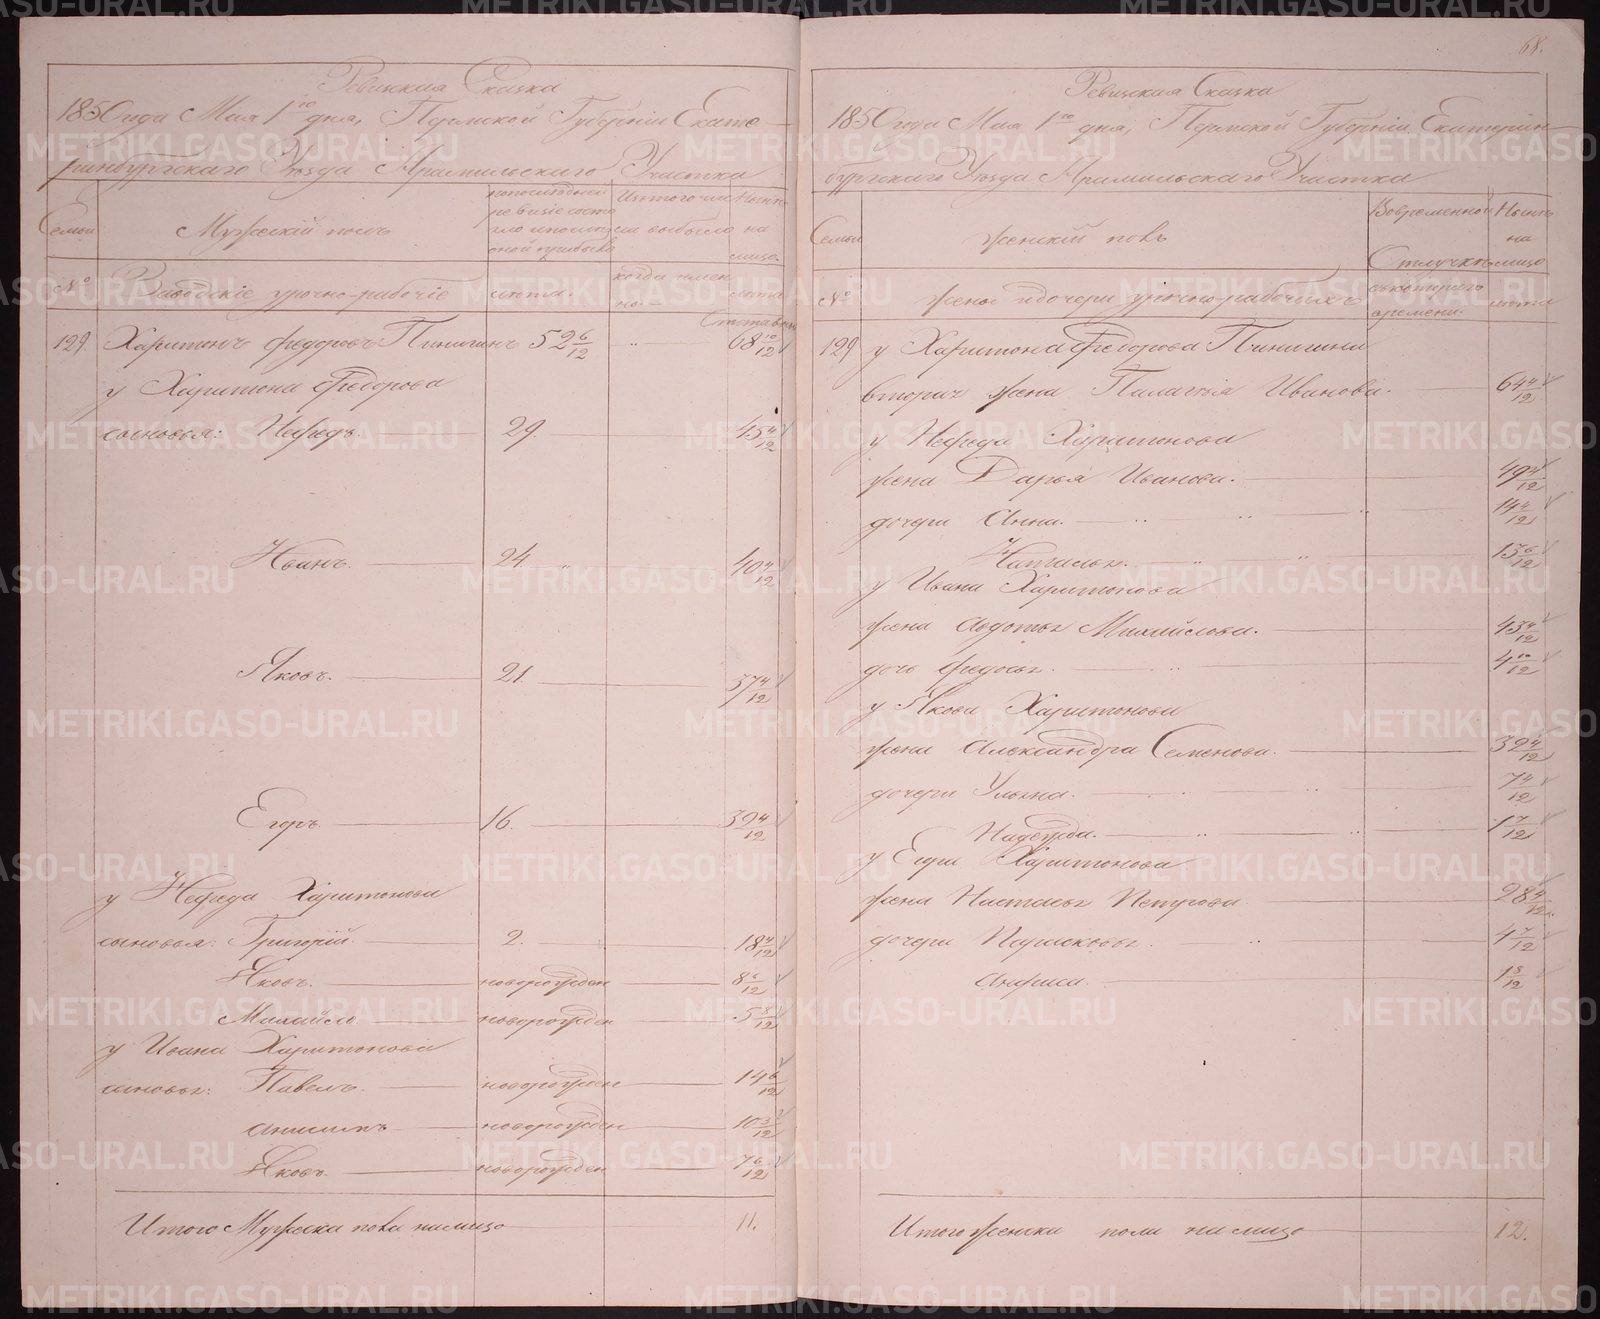 Ревизская Сказка
1850 года Мая 1го дня, Пермской Губерніи Екате-
ринбургскаго Уезда Арамильскаго Участка
Семьи
Мужескій полъ
по последней ревизіе состо
Изъ того числа выбыло
Ныне на лицо
№
Заводскіе урочно-рабочіе
лета.
когда имен
но.
летъ
129. Харитонъ Федоровъ Пинигинъ 52 6/12 " 68 10/12
у Харитона Федорова
сыновья: Нефедъ. 29. 45 4/12
Иванъ. 24. 40 4/12
Яковъ. 21. 37 4/12
Егоръ. 16. 32 4/12
у Нефеда Харитонова
сыновья: Григорій. 2. 18 4/12
Яковъ. новорожден 8 6/12
Михайло новорожден 5 8/12
у Ивана Харитонова
сыновья: Павелъ. новорожден 14 6/12
Анисимъ новорожден 10 3/12
Яковъ. новорожден 7 6/12
Итого Мужеска пола на лицо 11.
68.
Ревизская Сказка
1850 года Мая 1го дня, Пермской Губерніи Екатерин
бургскаго Уезда Арамильскаго Участка
Семьи
женскій полъ
Во временной Отлучке
Ныне на лицо
№
жены и дочери урочно-рабочихъ
съ котораго времени.
лета
129 у Харитона Федорова Пинигина
вторая жена Палагея Иванова. 64 4/12
у Нефеда Харитонова
жена Дарья Иванова. 49 4/12
дочери Анна. 14 4/12
Настасья. 13 6/12
у Ивана Харитонова
жена Авдотья Михайлова. 43 4/12
дочь Федосья. 4 10/12
у Якова Харитонова
жена Александра Семенова. 39 4/12
дочери Ульяна. 7 4/12
Надежда. 1 7/12
у Егора Харитонова
жена Настасья Петрова 28 4/12
дочери Парасковья. 4 7/12
Анфиса. 1 8/12
Итого женска пола на лицо 12.
METRIKI.GASO-URAL.RU